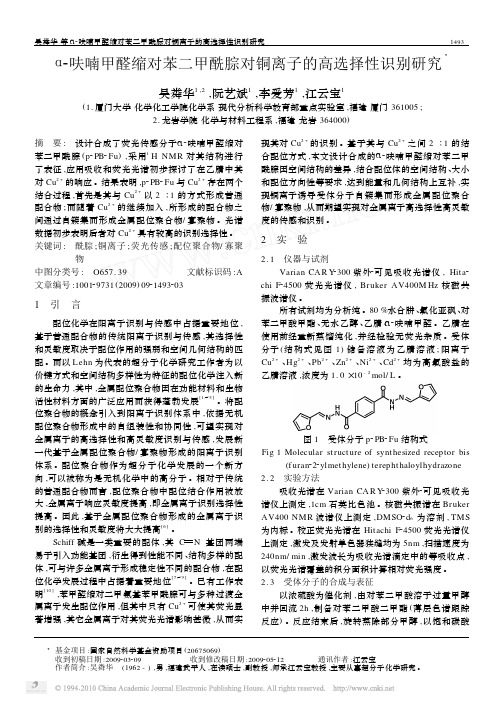 吴粦华 等:α-呋喃甲醛缩对苯二甲酰腙对铜离子的高选择性识别研究 1493
α-呋喃甲醛缩对苯二甲酰腙对铜离子的高选择性识别研究*
吴粦华1,2,阮艺斌1,李爱芳1,江云宝1
(1. 厦门大学 化学化工学院化学系 现代分析科学教育部重点实验室,福建 厦门 361005;
2. 龙岩学院 化学与材料工程系,福建 龙岩 364000)
摘 要: 设计合成了荧光传感分子α-呋喃甲醛缩对
苯二甲酰腙(p-PB-Fu),采用1H NMR对其结构进行
了表征,应用吸收和荧光光谱初步探讨了在乙腈中其
对Cu2+的响应。结果表明,p-PB-Fu与Cu2+存在两个
结合过程,首先是其与Cu2+以2∶1的方式形成普通
配合物;而随着Cu2+的继续加入,所形成的配合物之
间通过自组装而形成金属配位聚合物/寡聚物。光谱
数据初步表明后者对Cu2+具有较高的识别选择性。
关键词: 酰腙;铜离子;荧光传感;配位聚合物/寡聚
物
中图分类号: O657.39 文献标识码:A
文章编号:1001-9731(2009)09-1493-03
1 引 言
配位化学在阳离子识别与传感中占据重要地位,
基于普通配合物的传统阳离子识别与传感,其选择性
和灵敏度取决于配位作用的强弱和空间几何结构的匹
配。而以Lehn为代表的超分子化学研究工作者为以
价键方式和空间结构多样性为特征的配位化学注入新
的生命力,其中,金属配位聚合物因在功能材料和生物
活性材料方面的广泛应用而获得蓬勃发展[1~5]。将配
位聚合物的概念引入到阳离子识别体系中,依据无机
配位聚合物形成中的自组装性和协同性,可望实现对
金属离子的高选择性和高灵敏度识别与传感,发展新
一代基于金属配位聚合物/寡聚物形成的阳离子识别
体系。配位聚合物作为超分子化学发展的一个新方
向,可以被称为是无机化学中的高分子。相对于传统
的普通配合物而言,配位聚合物中配位结合作用被放
大,金属离子响应灵敏度提高,即金属离子识别选择性
提高。因此,基于金属配位聚合物形成的金属离子识
别的选择性和灵敏度将大大提高[6]。
Schiff碱是一类重要的配体,其C=N基团两端
易于引入功能基团,衍生得到性能不同、结构多样的配
体,可与许多金属离子形成稳定性不同的配合物,在配
位化学发展过程中占据着重要地位[7~9]。已有工作表
明[10],苯甲醛缩对二甲氨基苯甲酰腙可与多种过渡金
属离子发生配位作用,但其中只有Cu2+可使其荧光显
著增强,其它金属离子对其荧光光谱影响甚微,从而实
现其对Cu2+的识别。基于其与Cu2+之间2∶1的结
合配位方式,本文设计合成的α-呋喃甲醛缩对苯二甲
酰腙因空间结构的差异,结合配位体的空间结构、大小
和配位方向性等要求,达到能量和几何结构上互补,实
现铜离子诱导受体分子自组装而形成金属配位聚合
物/寡聚物,从而期望实现对金属离子高选择性高灵敏
度的传感和识别。
2 实 验
2.1 仪器与试剂
Varian CARY-300紫外-可见吸收光谱仪,Hita-
chi F-4500荧光光谱仪,Bruker AV400MHz核磁共
振波谱仪。
所有试剂均为分析纯。80%水合肼、氯化亚砜、对
苯二甲酸甲酯、无水乙醇、乙腈、α-呋喃甲醛。乙腈在
使用前经重新蒸馏纯化,并经检验无荧光杂质。受体
分子(结构式见图1)储备溶液为乙腈溶液;阳离子
Cu2+、Hg2+、Pb2+、Zn2+、Ni2+、Cd2+均为高氯酸盐的
乙腈溶液,浓度为1.0×10-2mol/L。
图1 受体分子p-PB-Fu结构式
Fig 1 Molecular structure of synthesized receptor bis
(furan-2-ylmethylene) terephthaloylhydrazone
2.2 实验方法
吸收光谱在Varian CARY-300紫外-可见吸收光
谱仪上测定,1cm石英比色池。核磁共振谱在Bruker
AV400 NMR波谱仪上测定,DMSO-d6为溶剂,TMS
为内标。校正荧光光谱在Hitachi F-4500荧光光谱仪
上测定,激发及发射单色器狭缝均为5nm,扫描速度为
240nm/min,激发波长为吸收光谱滴定中的等吸收点,
以荧光光谱覆盖的积分面积计算相对荧光强度。
2.3 受体分子的合成与表征
以浓硫酸为催化剂,由对苯二甲酸溶于过量甲醇
中并回流2h,制备对苯二甲酸二甲酯(薄层色谱跟踪
反应)。反应结束后,旋转蒸除部分甲醇,以饱和碳酸
* 基金项目:国家自然科学基金资助项目(20675069)
收到初稿日期:2009-03-09 收到修改稿日期:2009-05-12 通讯作者:江云宝
作者简介:吴粦华 (1962-),男,福建武平人,在读硕士,副教授,师承江云宝教授,主要从事超分子化学研究。
© 1994-2010 China Academic Journal Electronic Publishing House. All rights reserved. http://www.cnki.net